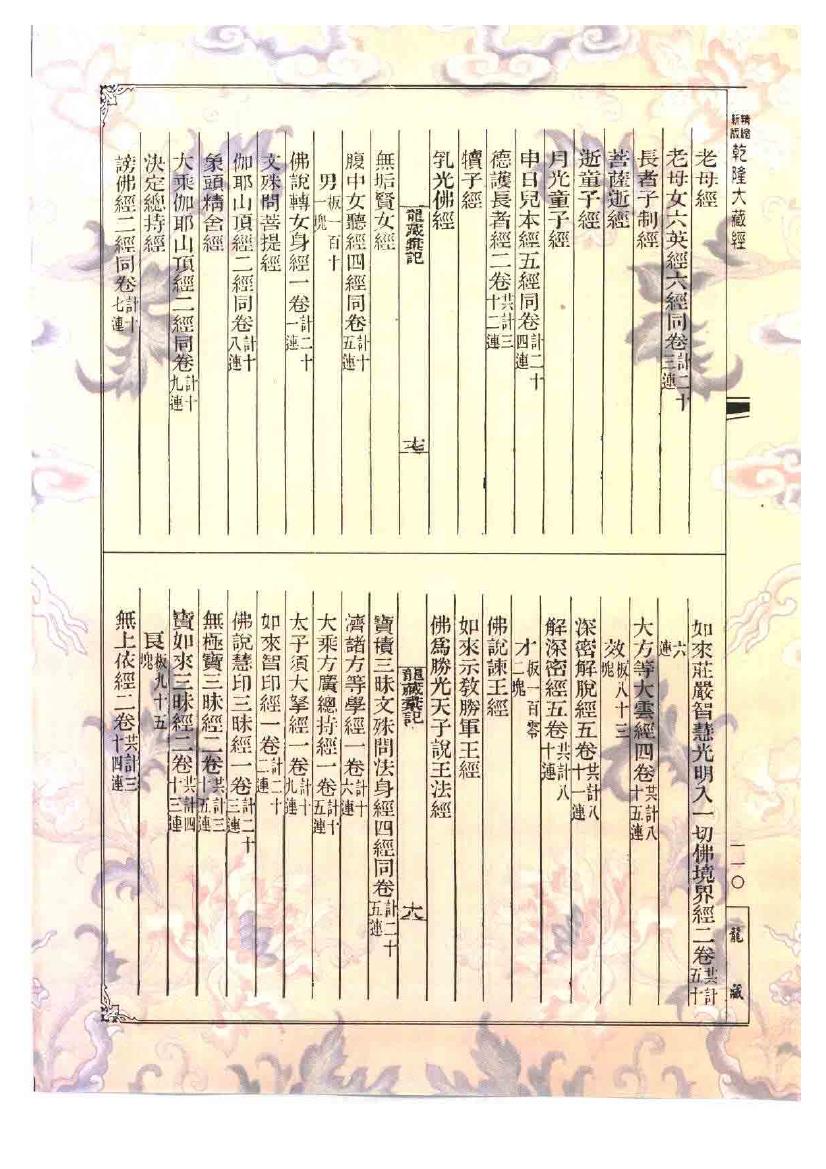 新版
精縮
乾隆大藏經
老母經
老母女六英經六經同卷計二十三連
長者子制經
菩薩逝經
逝童子經
月光童子經
申日兒本經五經同卷計二十四連
德護長者經二卷共計三十二連
犢子經
乳光佛經
龍藏彙記
十七
無垢賢女經
腹中女聽經四經同卷計十五連
男板一百十一塊
佛說轉女身經一卷計二十一連
文殊問菩提經
伽耶山頂經二經同卷計十八連
象頭精舍經
大乘伽耶山頂經二經同卷計十九連
決定總持經
謗佛經二經同卷計十七連
一一〇
龍藏
如來莊嚴智慧光明入一切佛境界經二卷共計五十
六連
大方等大雲經四卷共計八十五連
效板八十三塊
深密解脫經五卷共計八十一連
解深密經五卷共計八十連
才板一百零二塊
佛說諫王經
如來示教勝軍王經
佛為勝光天子說王法經
龍藏彙記
十八
寶積三昧文殊問法身經四經同卷計二十五連
濟諸方等學經一卷計十六連
大乘方廣總持經一卷計十五連
太子須大拏經一卷計十九連
如來智印經一卷計二十二連
佛說慧印三昧經一卷計二十三連
無極寶三昧經二卷共計三十五連
寶如來三昧經二卷共計四十三連
良板九十五塊
無上依經二卷共計三十四連